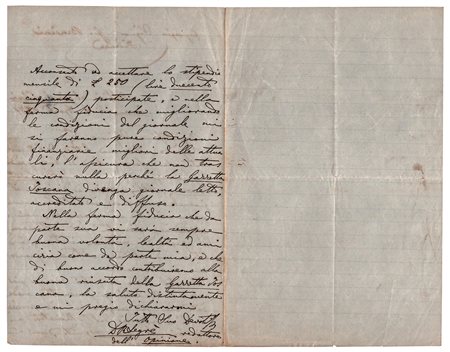 Acconsento ad accettare lo stipendio
mensile di £ 250 (lire duecento
cinquanta) partecipate, e nella
ferma fiducia che migliorando
le condizioni del giornale mi
si faranno pure condizioni
finanziarie migliori delle attua
li, l'assicura che non tras
curerò nulla perchè la Gazzetta
Toscana divenga giornale letto,
accreditato e diffuso.
Nella ferma fiducia che da
parte sua vi sarà sempre
buona volontà, lealtà ed ami
cizia come da parte mia, e che
di buon accordo contribuiremo alla
buona riuscita della Gazzetta Tos
cana, la saluto distintamente
e mi pregio dichiararmi
Tutto Suo
redattore
dell' Opinione.